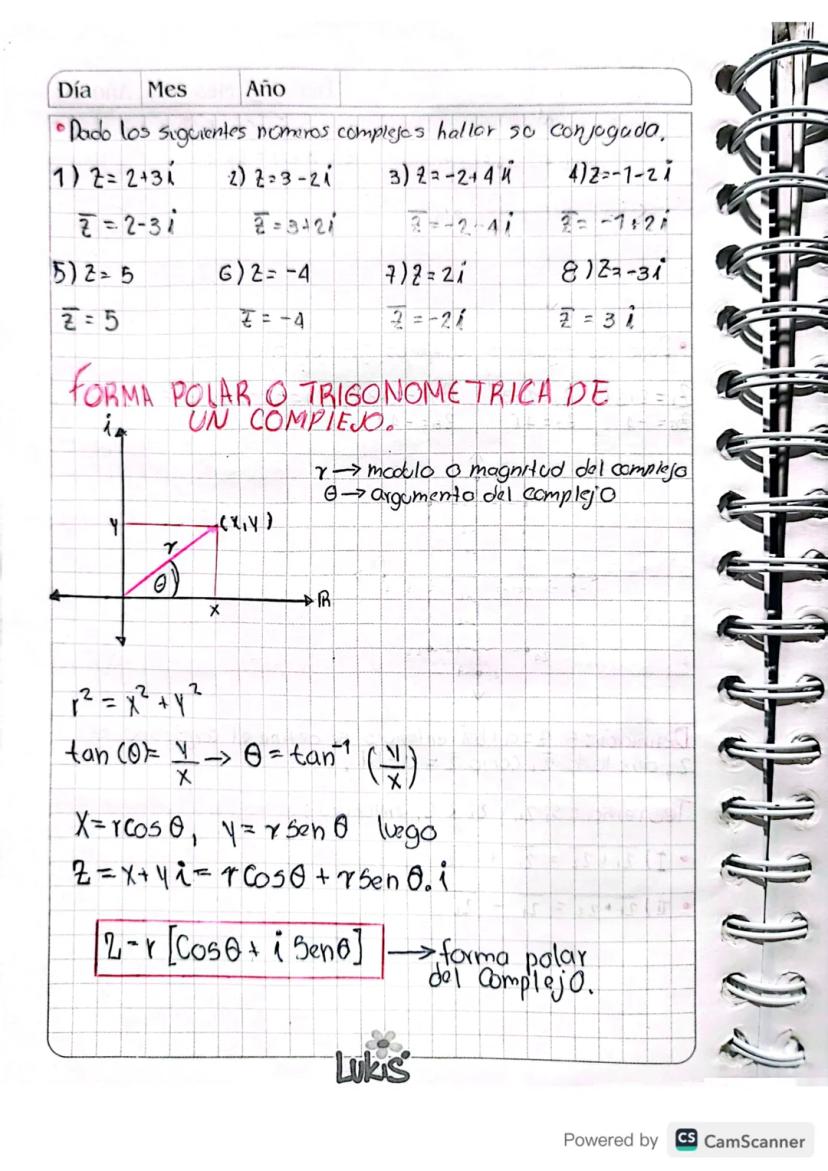 Día Mes Año
• Dado los siguientes números complejos hallar su conjugado.
1) Z = 2+3i 2) Z = 3-2i 3) Z = -2+4i 4) Z = -1-2i
z̅ = 2-3i z̅ = 3+2i z̅ = -2-4i z̅ = -1+2i
5) Z = 5 6) Z = -4 7) Z = 2i 8) Z = -3i
z̅ = 5 z̅ = -4 z̅ = -2i z̅ = 3i
FORMA POLAR O TRIGONOMETRICA DE
UN COMPLEJO.
i
r → modulo o magnitud del complejo
θ → argumento del complejo
y (x,y)
r
θ
x R
r² = x² + y²
tan (θ) = y/x → θ = tan⁻¹ (y/x)
X = r cos θ, y = r sen θ luego
Z = x + yi = r Cos θ + r sen θ. i
Z = r [Cos θ + i Sen θ] → forma polar
del complejo.
LUKIS
Powered by CS CamScanner